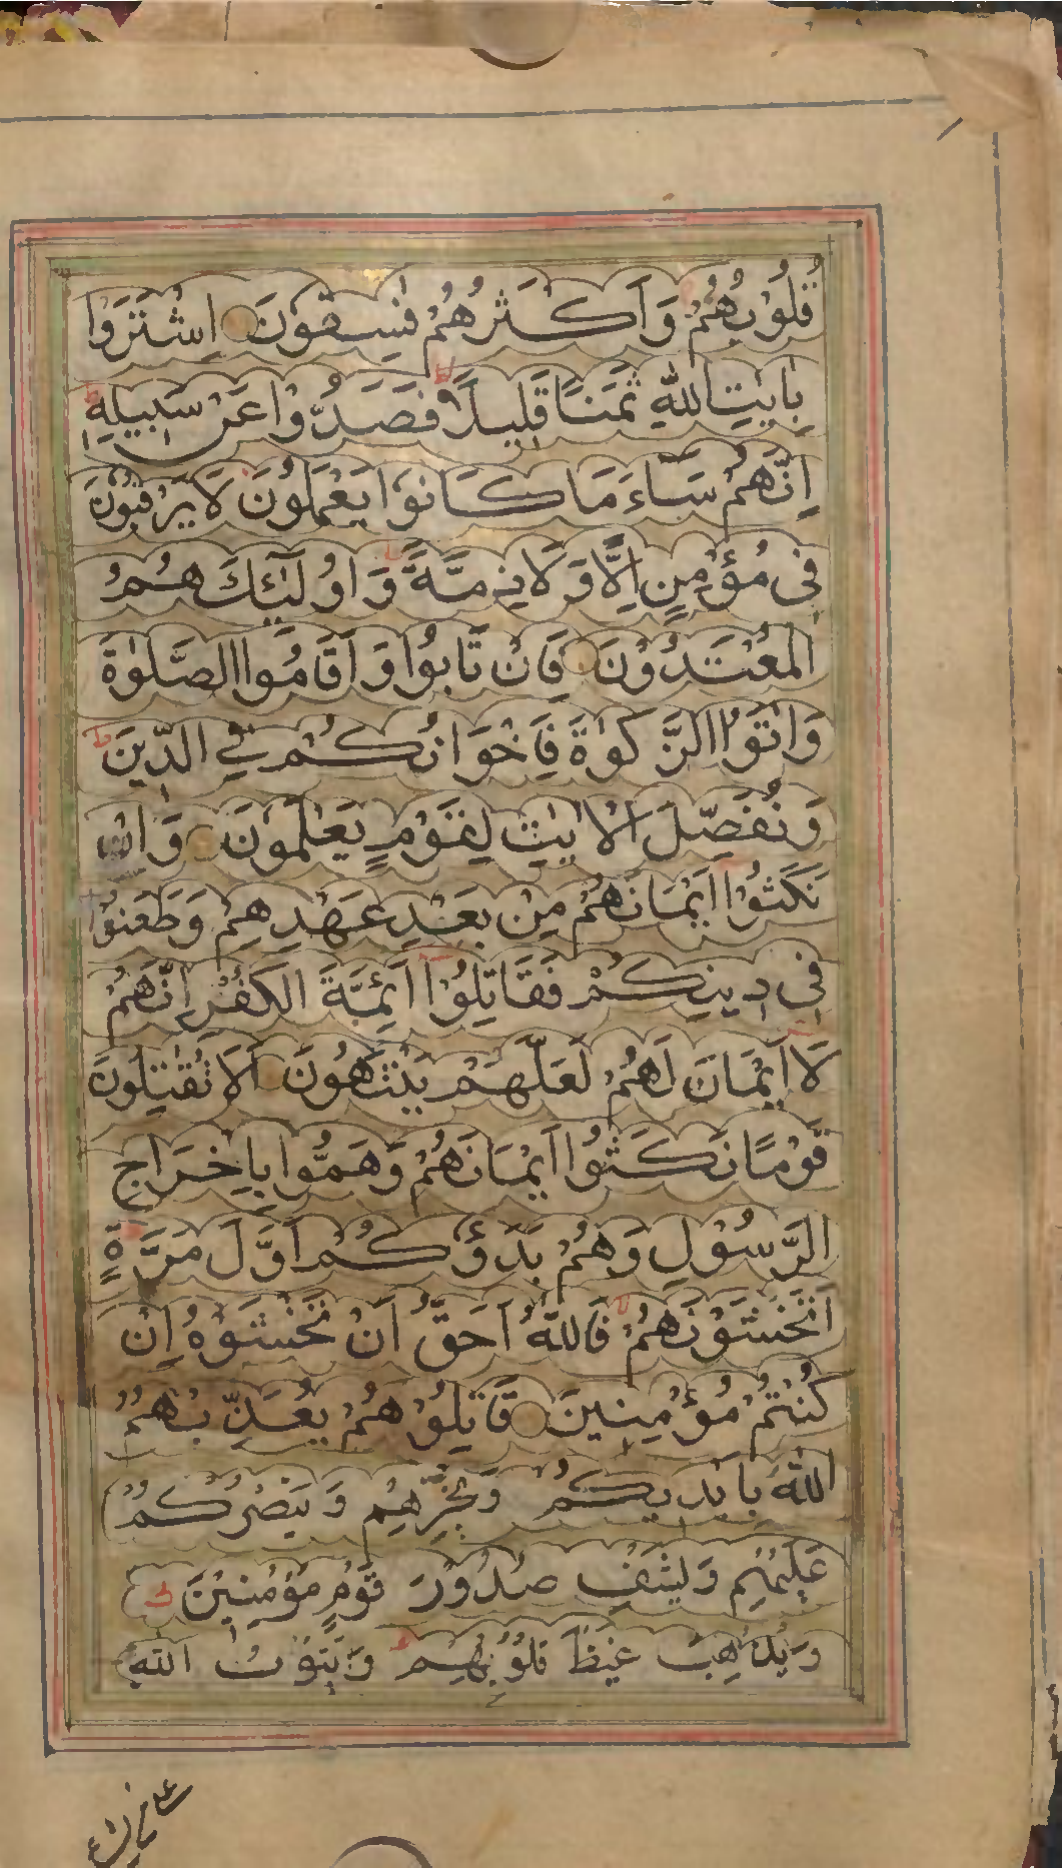 قُلُوْبُهُمْ وَاَكْثَرُهُمْ فٰسِقُوْنَ اِشْتَرَوْا
بِاٰيٰتِ اللّٰهِ ثَمَنًا قَلِيْلًا فَصَدُّوْا عَنْ سَبِيْلِهٖ ط
اِنَّهُمْ سَآءَ مَا كَانُوْا يَعْمَلُوْنَ لَا يَرْقُبُوْنَ
فِىْ مُؤْمِنٍ اِلًّا وَّلَا ذِمَّةً وَاُولٰٓئِكَ هُمُ
الْمُعْتَدُوْنَ فَاِنْ تَابُوْا وَاَقَامُوا الصَّلٰوةَ
وَاٰتَوُا الزَّكٰوةَ فَاِخْوَانُكُمْ فِى الدِّيْنِ ط
وَنُفَصِّلُ الْاٰيٰتِ لِقَوْمٍ يَّعْلَمُوْنَ وَاِنْ
نَّكَثُوْٓا اَيْمَانَهُمْ مِنْ بَعْدِ عَهْدِهِمْ وَطَعَنُوْا
فِىْ دِيْنِكُمْ فَقَاتِلُوْٓا اَئِمَّةَ الْكُفْرِ اِنَّهُمْ
لَآ اَيْمَانَ لَهُمْ لَعَلَّهُمْ يَنْتَهُوْنَ اَلَا تُقٰتِلُوْنَ
قَوْمًا نَّكَثُوْا اَيْمَانَهُمْ وَهَمُّوْا بِاِخْرَاجِ
الرَّسُوْلِ وَهُمْ بَدَؤُكُمْ اَوَّلَ مَرَّةٍ
اَتَخْشَوْنَهُمْ فَاللّٰهُ اَحَقُّ اَنْ تَخْشَوْهُ اِنْ
كُنْتُمْ مُؤْمِنِيْنَ قَاتِلُوْهُمْ يُعَذِّبْهُمُ
اللّٰهُ بِاَيْدِيْكُمْ وَيُخْزِهِمْ وَيَنْصُرْكُمْ
عَلَيْهِمْ وَيَشْفِ صُدُوْرَ قَوْمٍ مُؤْمِنِيْنَ
وَيُذْهِبْ غَيْظَ قُلُوْبِهِمْ وَيَتُوْبُ اللّٰهُ